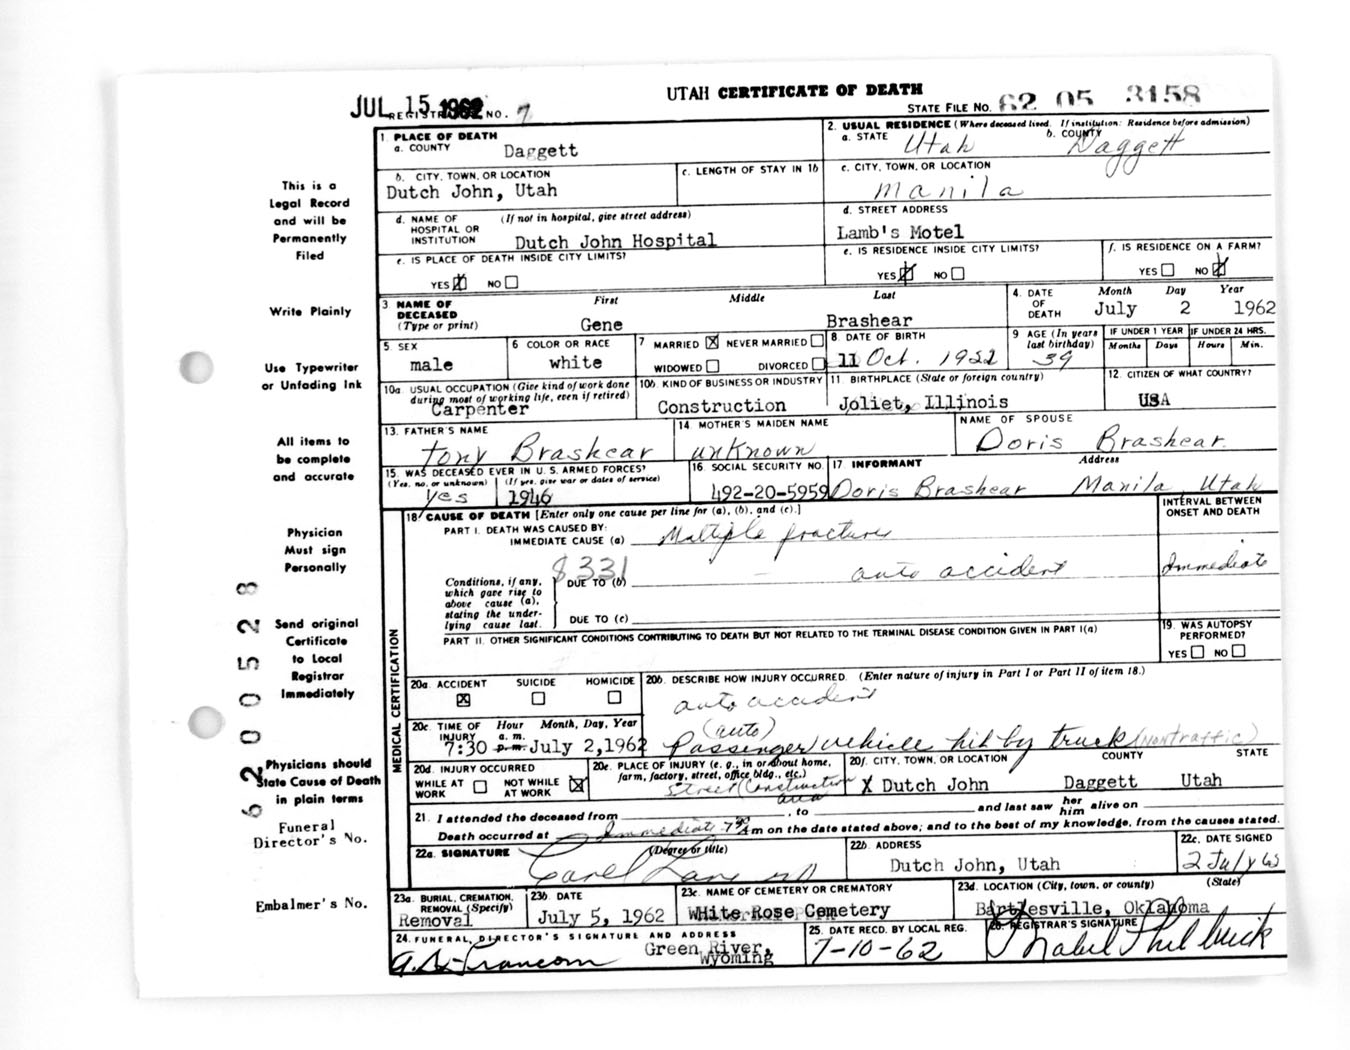 UTAH CERTIFICATE OF DEATH
JUL 15 1962
REGISTRAR'S NO. 7
STATE FILE NO. 62 05 3158
This is a
Legal Record
and will be
Permanently
Filed
Write Plainly
Use Typewriter
or Unfading Ink
All items to
be complete
and accurate
Physician
Must sign
Personally
Send original
Certificate
to Local
Registrar
Immediately
Physicians should
State Cause of Death
in plain terms
Funeral
Director's No.
Embalmer's No.
62 0 00528
1. PLACE OF DEATH
a. COUNTY Daggett
2. USUAL RESIDENCE (Where deceased lived. If institution: Residence before admission)
a. STATE Utah b. COUNTY Daggett
b. CITY, TOWN, OR LOCATION Dutch John, Utah
c. LENGTH OF STAY IN 1b
c. CITY, TOWN, OR LOCATION Manila
d. NAME OF HOSPITAL OR INSTITUTION (If not in hospital, give street address) Dutch John Hospital
d. STREET ADDRESS Lamb's Motel
e. IS PLACE OF DEATH INSIDE CITY LIMITS? YES NO
e. IS RESIDENCE INSIDE CITY LIMITS? YES NO
f. IS RESIDENCE ON A FARM? YES NO
3. NAME OF DECEASED (Type or print) First Gene Middle Last Brashear
4. DATE OF DEATH Month July Day 2 Year 1962
5. SEX male
6. COLOR OR RACE white
7. MARRIED X NEVER MARRIED WIDOWED DIVORCED
8. DATE OF BIRTH 11 Oct. 1922
9. AGE (In years last birthday) 39
IF UNDER 1 YEAR Months Days IF UNDER 24 HRS. Hours Min.
10a. USUAL OCCUPATION (Give kind of work done during most of working life, even if retired) Carpenter
10b. KIND OF BUSINESS OR INDUSTRY Construction
11. BIRTHPLACE (State or foreign country) Joliet, Illinois
12. CITIZEN OF WHAT COUNTRY? USA
13. FATHER'S NAME Tony Brashear
14. MOTHER'S MAIDEN NAME unknown
NAME OF SPOUSE Doris Brashear.
15. WAS DECEASED EVER IN U.S. ARMED FORCES? (Yes, no, or unknown) (If yes, give war or dates of service) yes 1946
16. SOCIAL SECURITY NO. 492-20-5959
17. INFORMANT Address Doris Brashear Manila, Utah
18. CAUSE OF DEATH [Enter only one cause per line for (a), (b), and (c).]
INTERVAL BETWEEN ONSET AND DEATH
PART I. DEATH WAS CAUSED BY:
IMMEDIATE CAUSE (a) Multiple fractures
8331
DUE TO (b) auto accident Immediate
Conditions, if any, which gave rise to above cause (a), stating the underlying cause last.
DUE TO (c)
PART II. OTHER SIGNIFICANT CONDITIONS CONTRIBUTING TO DEATH BUT NOT RELATED TO THE TERMINAL DISEASE CONDITION GIVEN IN PART I(a)
19. WAS AUTOPSY PERFORMED? YES NO
MEDICAL CERTIFICATION
20a. ACCIDENT X SUICIDE HOMICIDE
20b. DESCRIBE HOW INJURY OCCURRED. (Enter nature of injury in Part I or Part II of item 18.)
auto accident
(auto)
Passenger vehicle hit by truck (Nontraffic)
20c. TIME OF INJURY Hour Month, Day, Year 7:30 a.m. p.m. July 2, 1962
20d. INJURY OCCURRED WHILE AT WORK NOT WHILE AT WORK X
20e. PLACE OF INJURY (e. g., in or about home, farm, factory, street, office bldg., etc.) Street (Construction area
20f. CITY, TOWN, OR LOCATION COUNTY STATE
X Dutch John Daggett Utah
21. I attended the deceased from , to and last saw her him alive on
Death occurred at Immediate 7:30 Am on the date stated above; and to the best of my knowledge, from the causes stated.
22a. SIGNATURE (Degree or title)
22b. ADDRESS Dutch John, Utah
22c. DATE SIGNED 2 July 62
23a. BURIAL, CREMATION, REMOVAL (Specify) Removal
23b. DATE July 5, 1962
23c. NAME OF CEMETERY OR CREMATORY White Rose Cemetery
23d. LOCATION (City, town, or county) (State) Bartlesville, Oklahoma
24. FUNERAL DIRECTOR'S SIGNATURE AND ADDRESS Green River, Wyoming
25. DATE RECD. BY LOCAL REG. 7-10-62
26. REGISTRAR'S SIGNATURE Mabel Philbrick